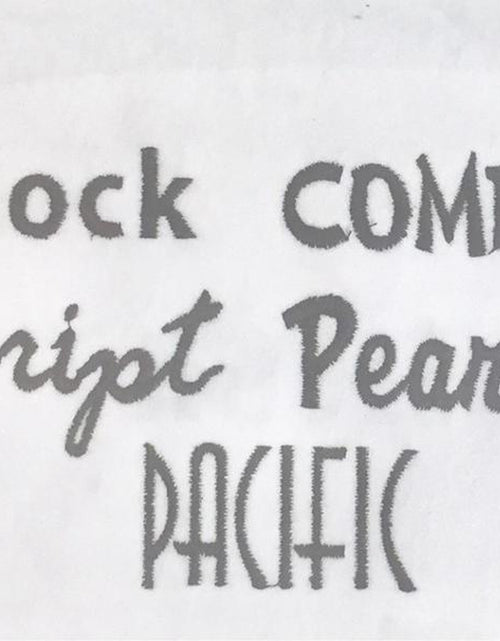 ock COMI
ript Pean
PACIFIC